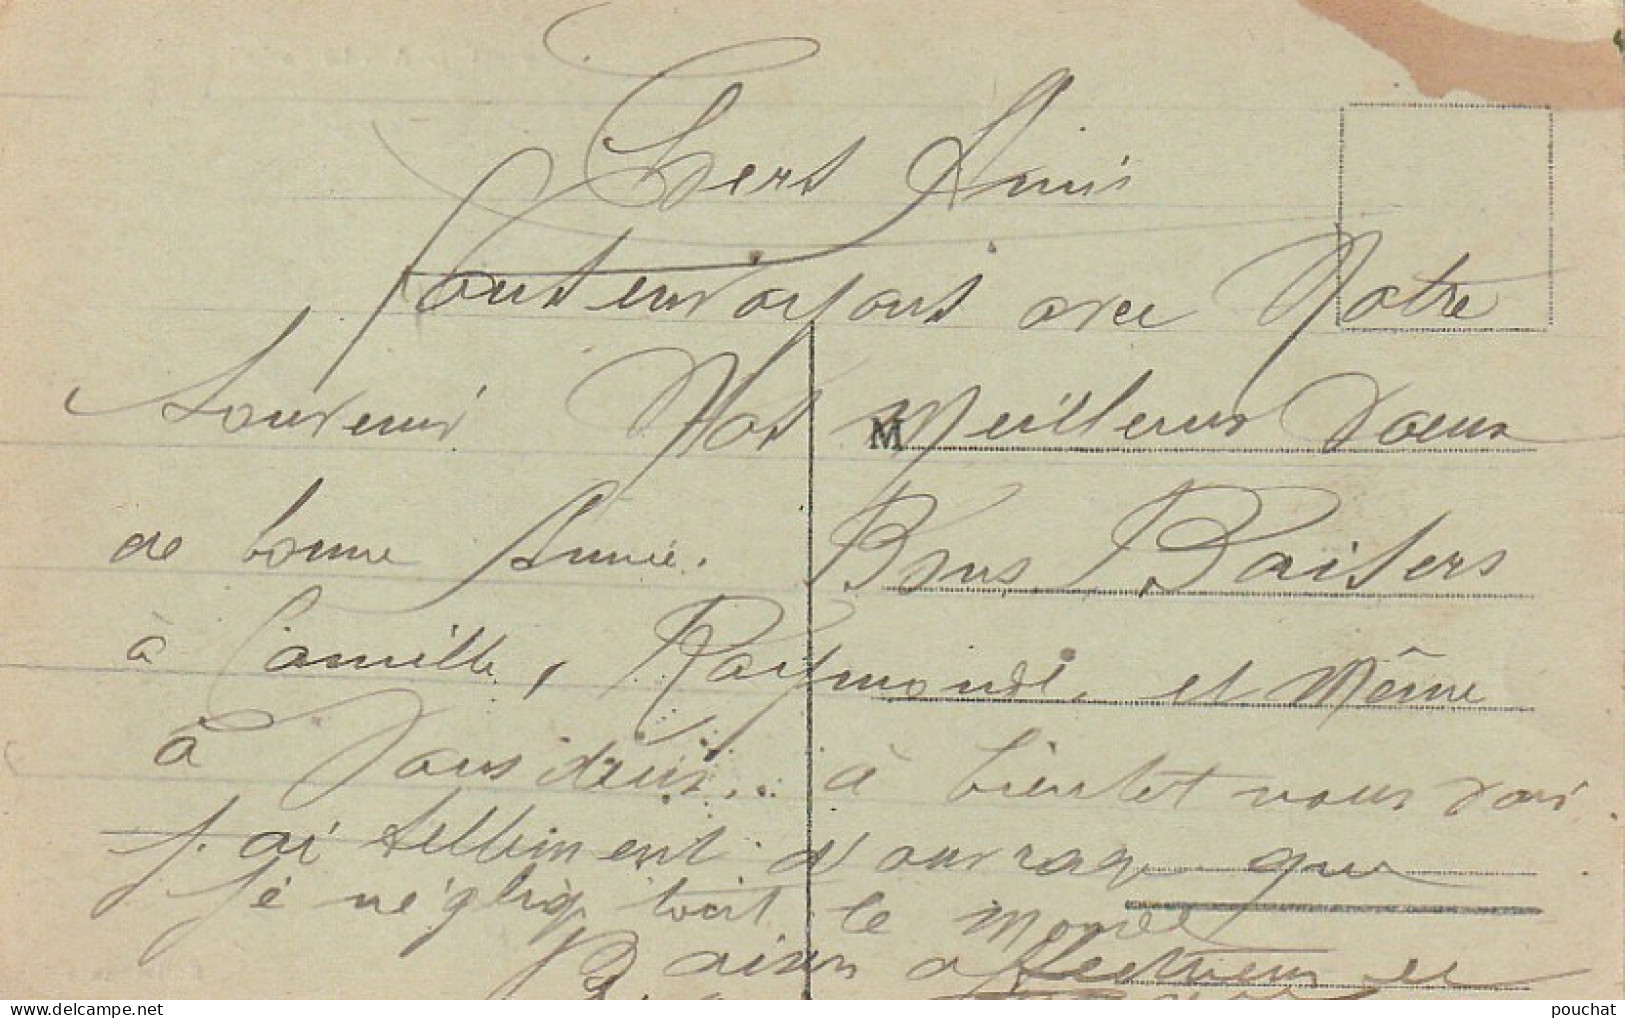 Chers Amis
Vous envoyons avec Notre
Souvenir Nos Meilleurs Voeux
de bonne Année. Bons Baisers
à Camille, Raymonde. et Même
à Vous deux. à bientot vous voir
j. ai tellement d'ouvrage que
je néglige tout le monde
Baisers affectueux et
M
pouchat